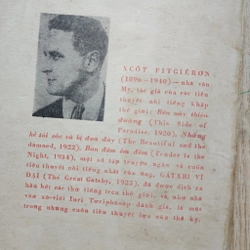 XCỐT FITGIÊRƠN
(1896-1940) — nhà văn
Mỹ, tác giả của các tiểu
thuyết nổi tiếng khắp
thế giới: Bên này thiên
đường (This Side of
Paradise, 1920), Những
kẻ tài sắc và bị đọa đày (The Beautiful and the
damned, 1922), Đêm dịu êm (Tender Is the
Night, 1934), một số tập truyện ngắn và cuốn
tiểu thuyết nổi tiếng nhất của ông, GATXBI VĨ
ĐẠI (The Great Gatsby, 1925), đã được dịch ra
hầu hết các thứ tiếng trên thế giới, và như nhà
văn xô-viết Iuri đánh giá, là một
trong những cuốn tiểu thuyết lớn của thế kỷ.